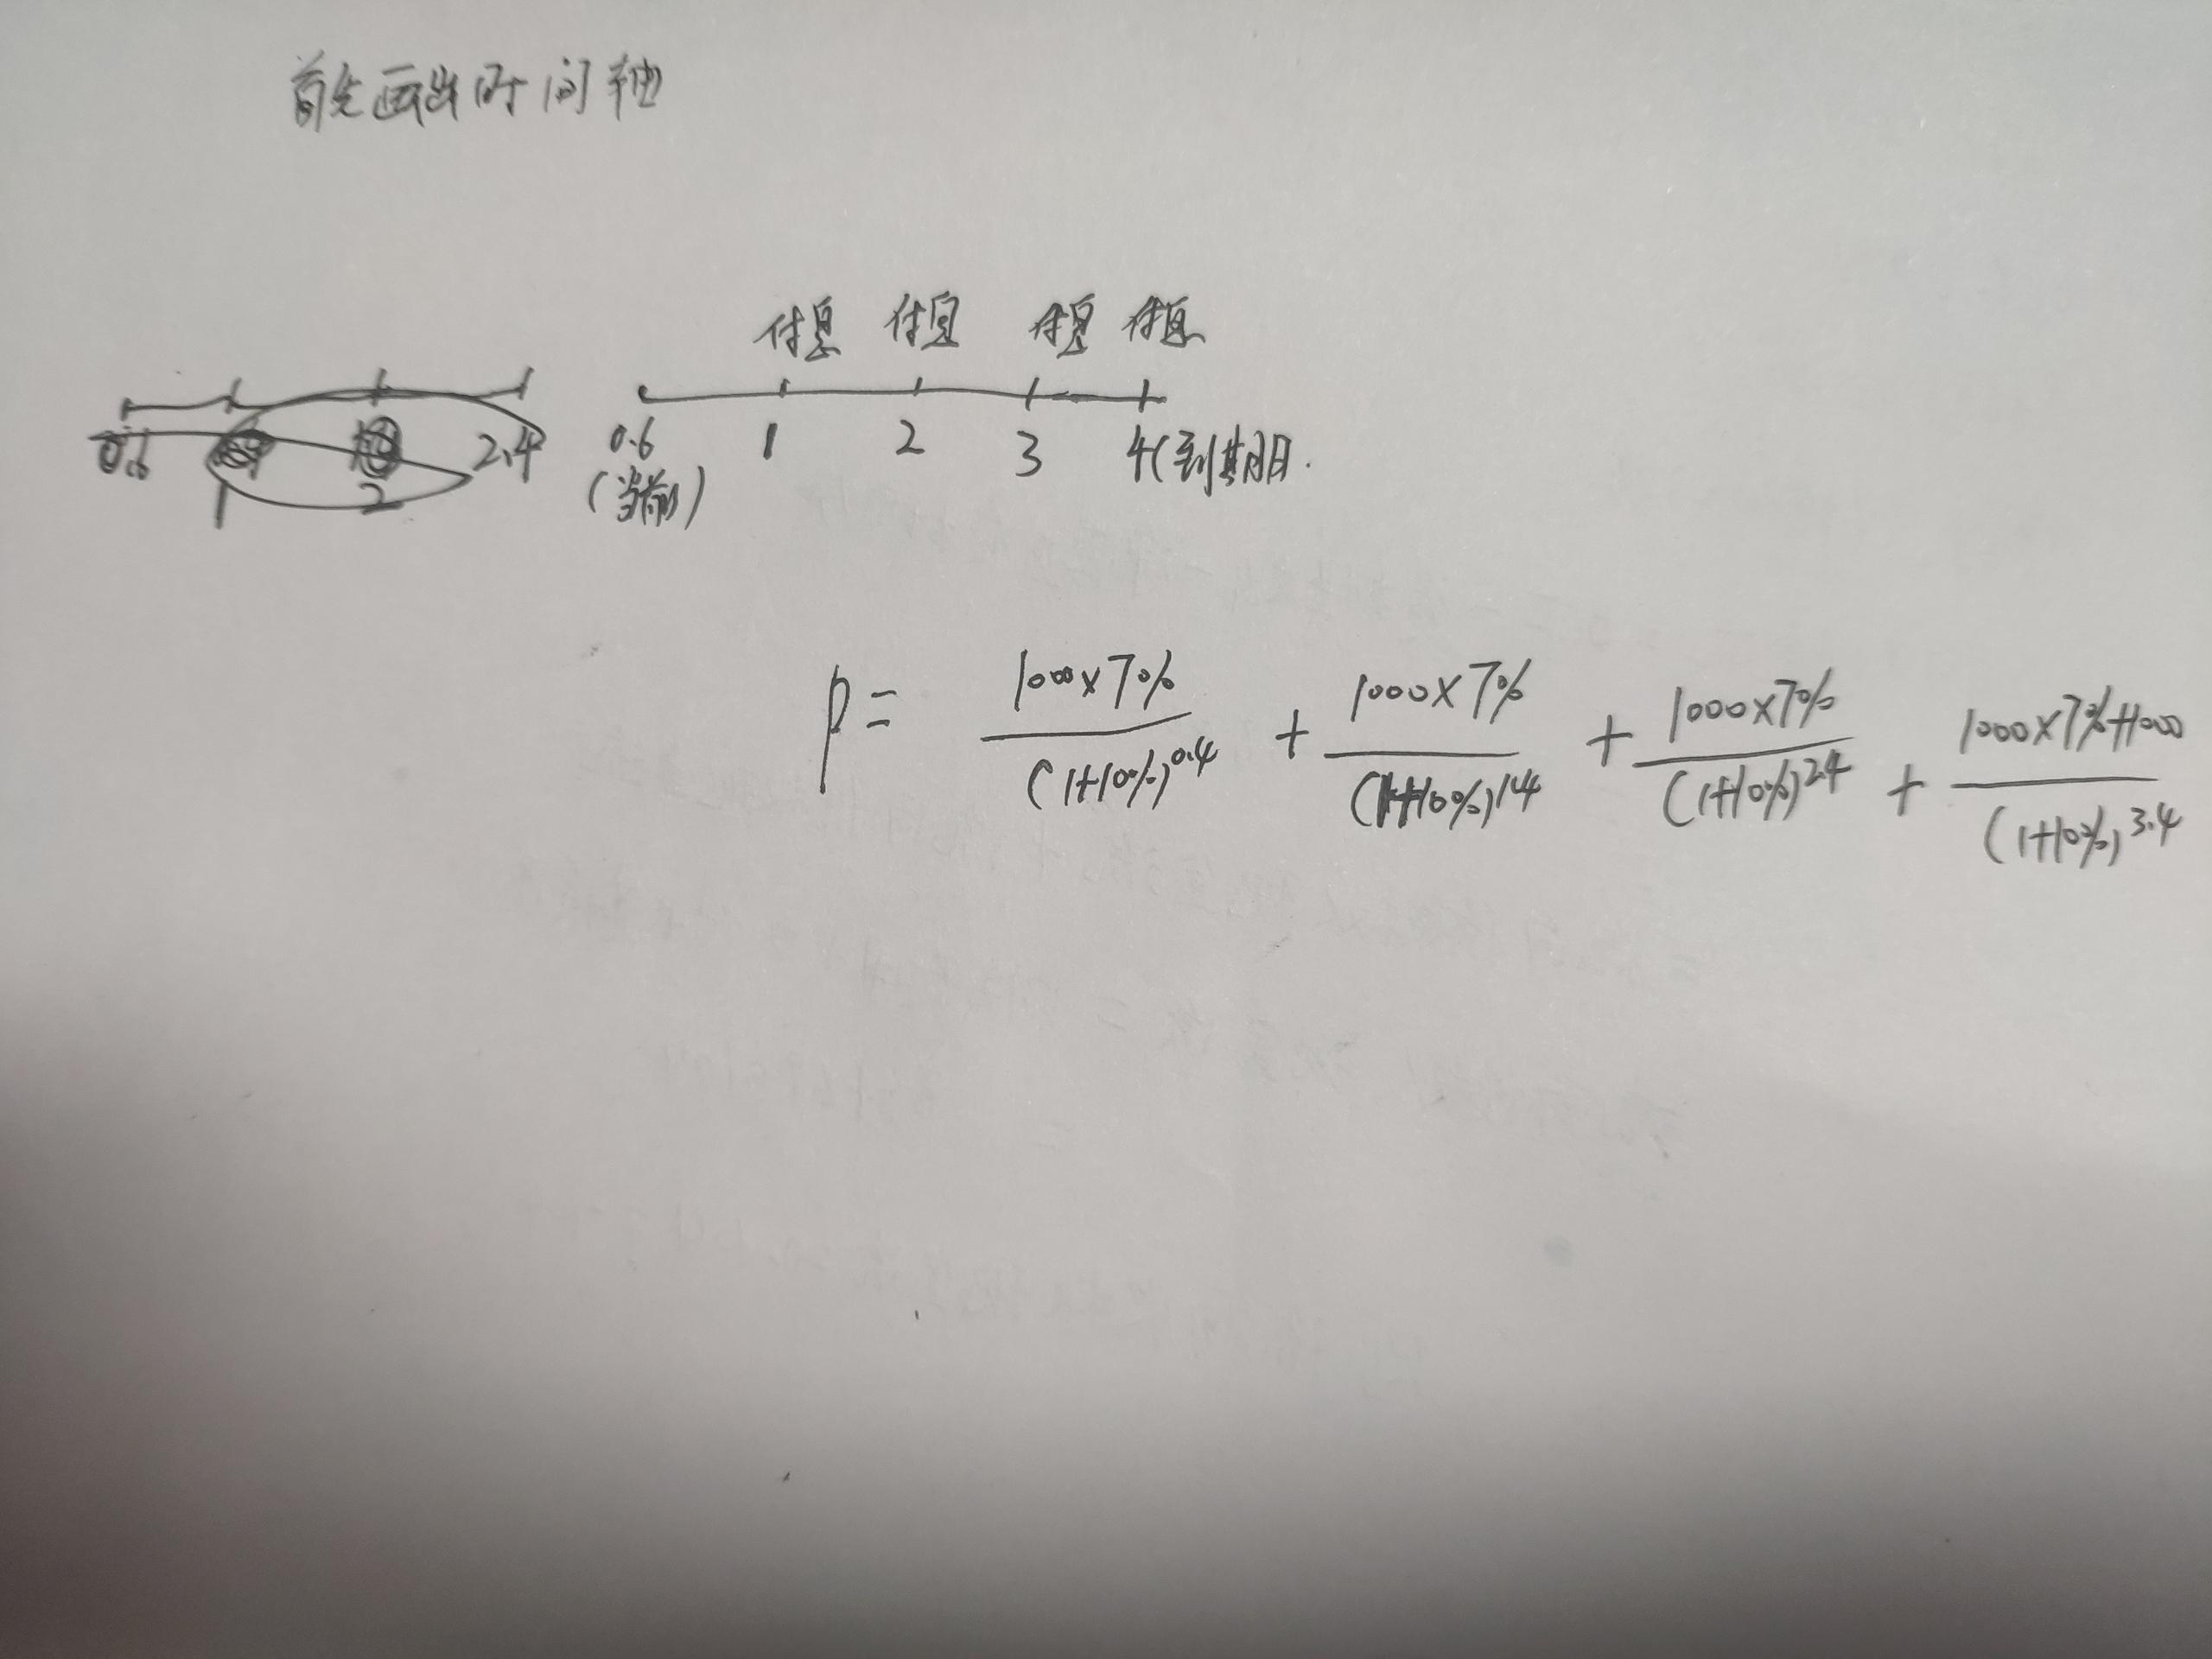 首先画出时间轴
付息 付息 付息 付息
0.6 1 2 3 4(到期日.
(当前)
2.4
1 2
P = \frac{1000×7%}{(1+10%)^{0.4}} + \frac{1000×7%}{(1+10%)^{1.4}} + \frac{1000×7%}{(1+10%)^{2.4}} + \frac{1000×7%+1000}{(1+10%)^{3.4}}